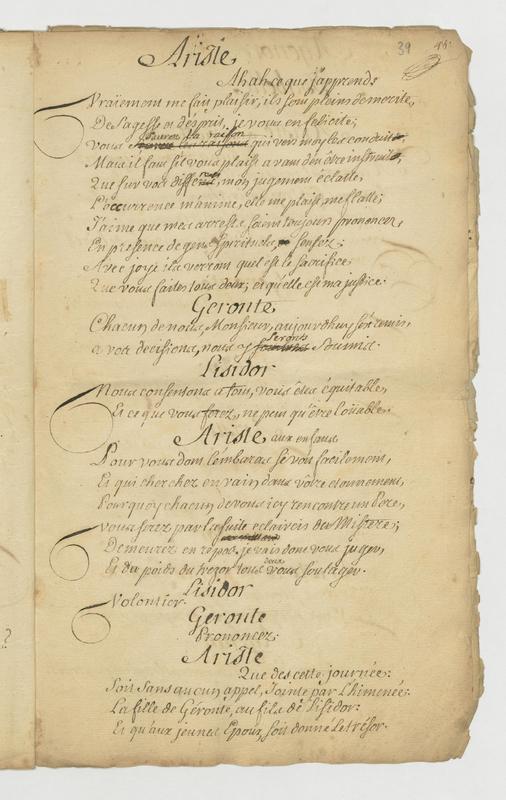 39
Ariste,
Ah ah ce que j'apprends
Vraiement me fait plaisir, ils sont plein de merite,
De Sagesse et d'esprit, je vous en felicite;
Sauray la raison
Vous qui vers moy les conduit,
Mais il faut s'il vous plaist avant d'en être instruit,
Que sur vos diffe, mon jugement eclatte,
L'occurrence m'anime, elle me plaist, me flatte;
J'aime que mes arrests soient toujours prononcez,
En presence de gens, Spirituels, sensez;
Avec joye ils verront quel est le Sacrifice,
Que vous faites tous deux; et qu'elle est ma justice.
Geronte,
Chacun de nous, Monsieur, aujourdhuy s'est remis,
Serons
a vos decisions, nous y Soumis.
Lisidor
Nous consentons a tout, vous êtes équitable,
Et ce que vous ferez, ne peut qu'être loüable.
Ariste, aux enfans
Pour vous dont l'embaras se voit facilement,
Et qui cherchez en vain dans vôtre etonnement,
Pourquoy chacun de vous icy rencontre un Pere,
Vous serez par la suite eclaircis du Mistere;
Demeurez en repos, je vais donc vous juger,
deux
Et du poids du trezor tous vous soulager.
Lisidor
Volontier.
Geronte
Prononcez.
Ariste
Que des cette journée:
Soit Sans aucun appel, Jointe par L'himenée:
La fille de Géronte, au fils de Lisidor:
Et qu'aux jeunes Epoux, soit donné le trésor.